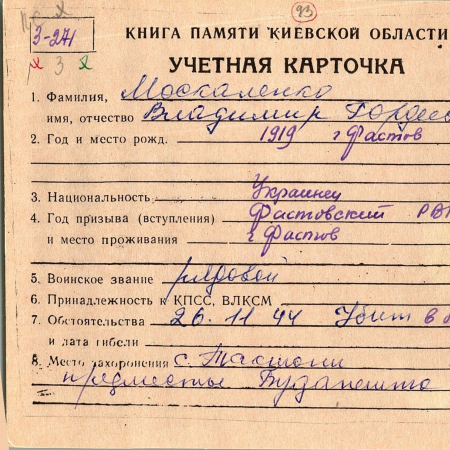 93
3-271
3
КНИГА ПАМЯТИ КИЕВСКОЙ ОБЛАСТИ
УЧЕТНАЯ КАРТОЧКА
1. Фамилия, Москаленко
имя, отчество Владимир Гордее
2. Год и место рожд. 1919 г Фастов
3. Национальность Украинец
4. Год призыва (вступления) Фастовский РВК
и место проживания г Фастов
5. Воинское звание рядовой
6. Принадлежность к КПСС, ВЛКСМ
7. Обстоятельства 26. 11 44 Убит в
и дата гибели
8. Место захоронения с.
предместье Будапешта